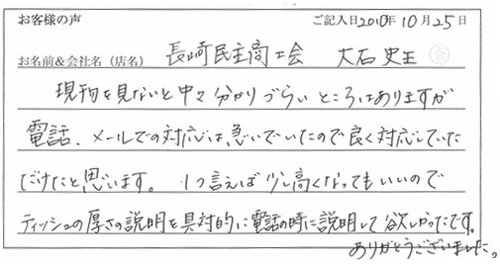 お客様の声 ご記入日2010年10月25日
お名前&会社名(店名) 長崎民主商工会 大石史王
現物を見ないと中々分かりづらいところはありますが
電話、メールでの対応は、急いでいたので良く対応していた
だけたと思います。 1つ言えば少し高くなってもいいので
ティッシュの厚さの説明を具対的に電話の時に説明して欲しかったです。
ありがとうございました。